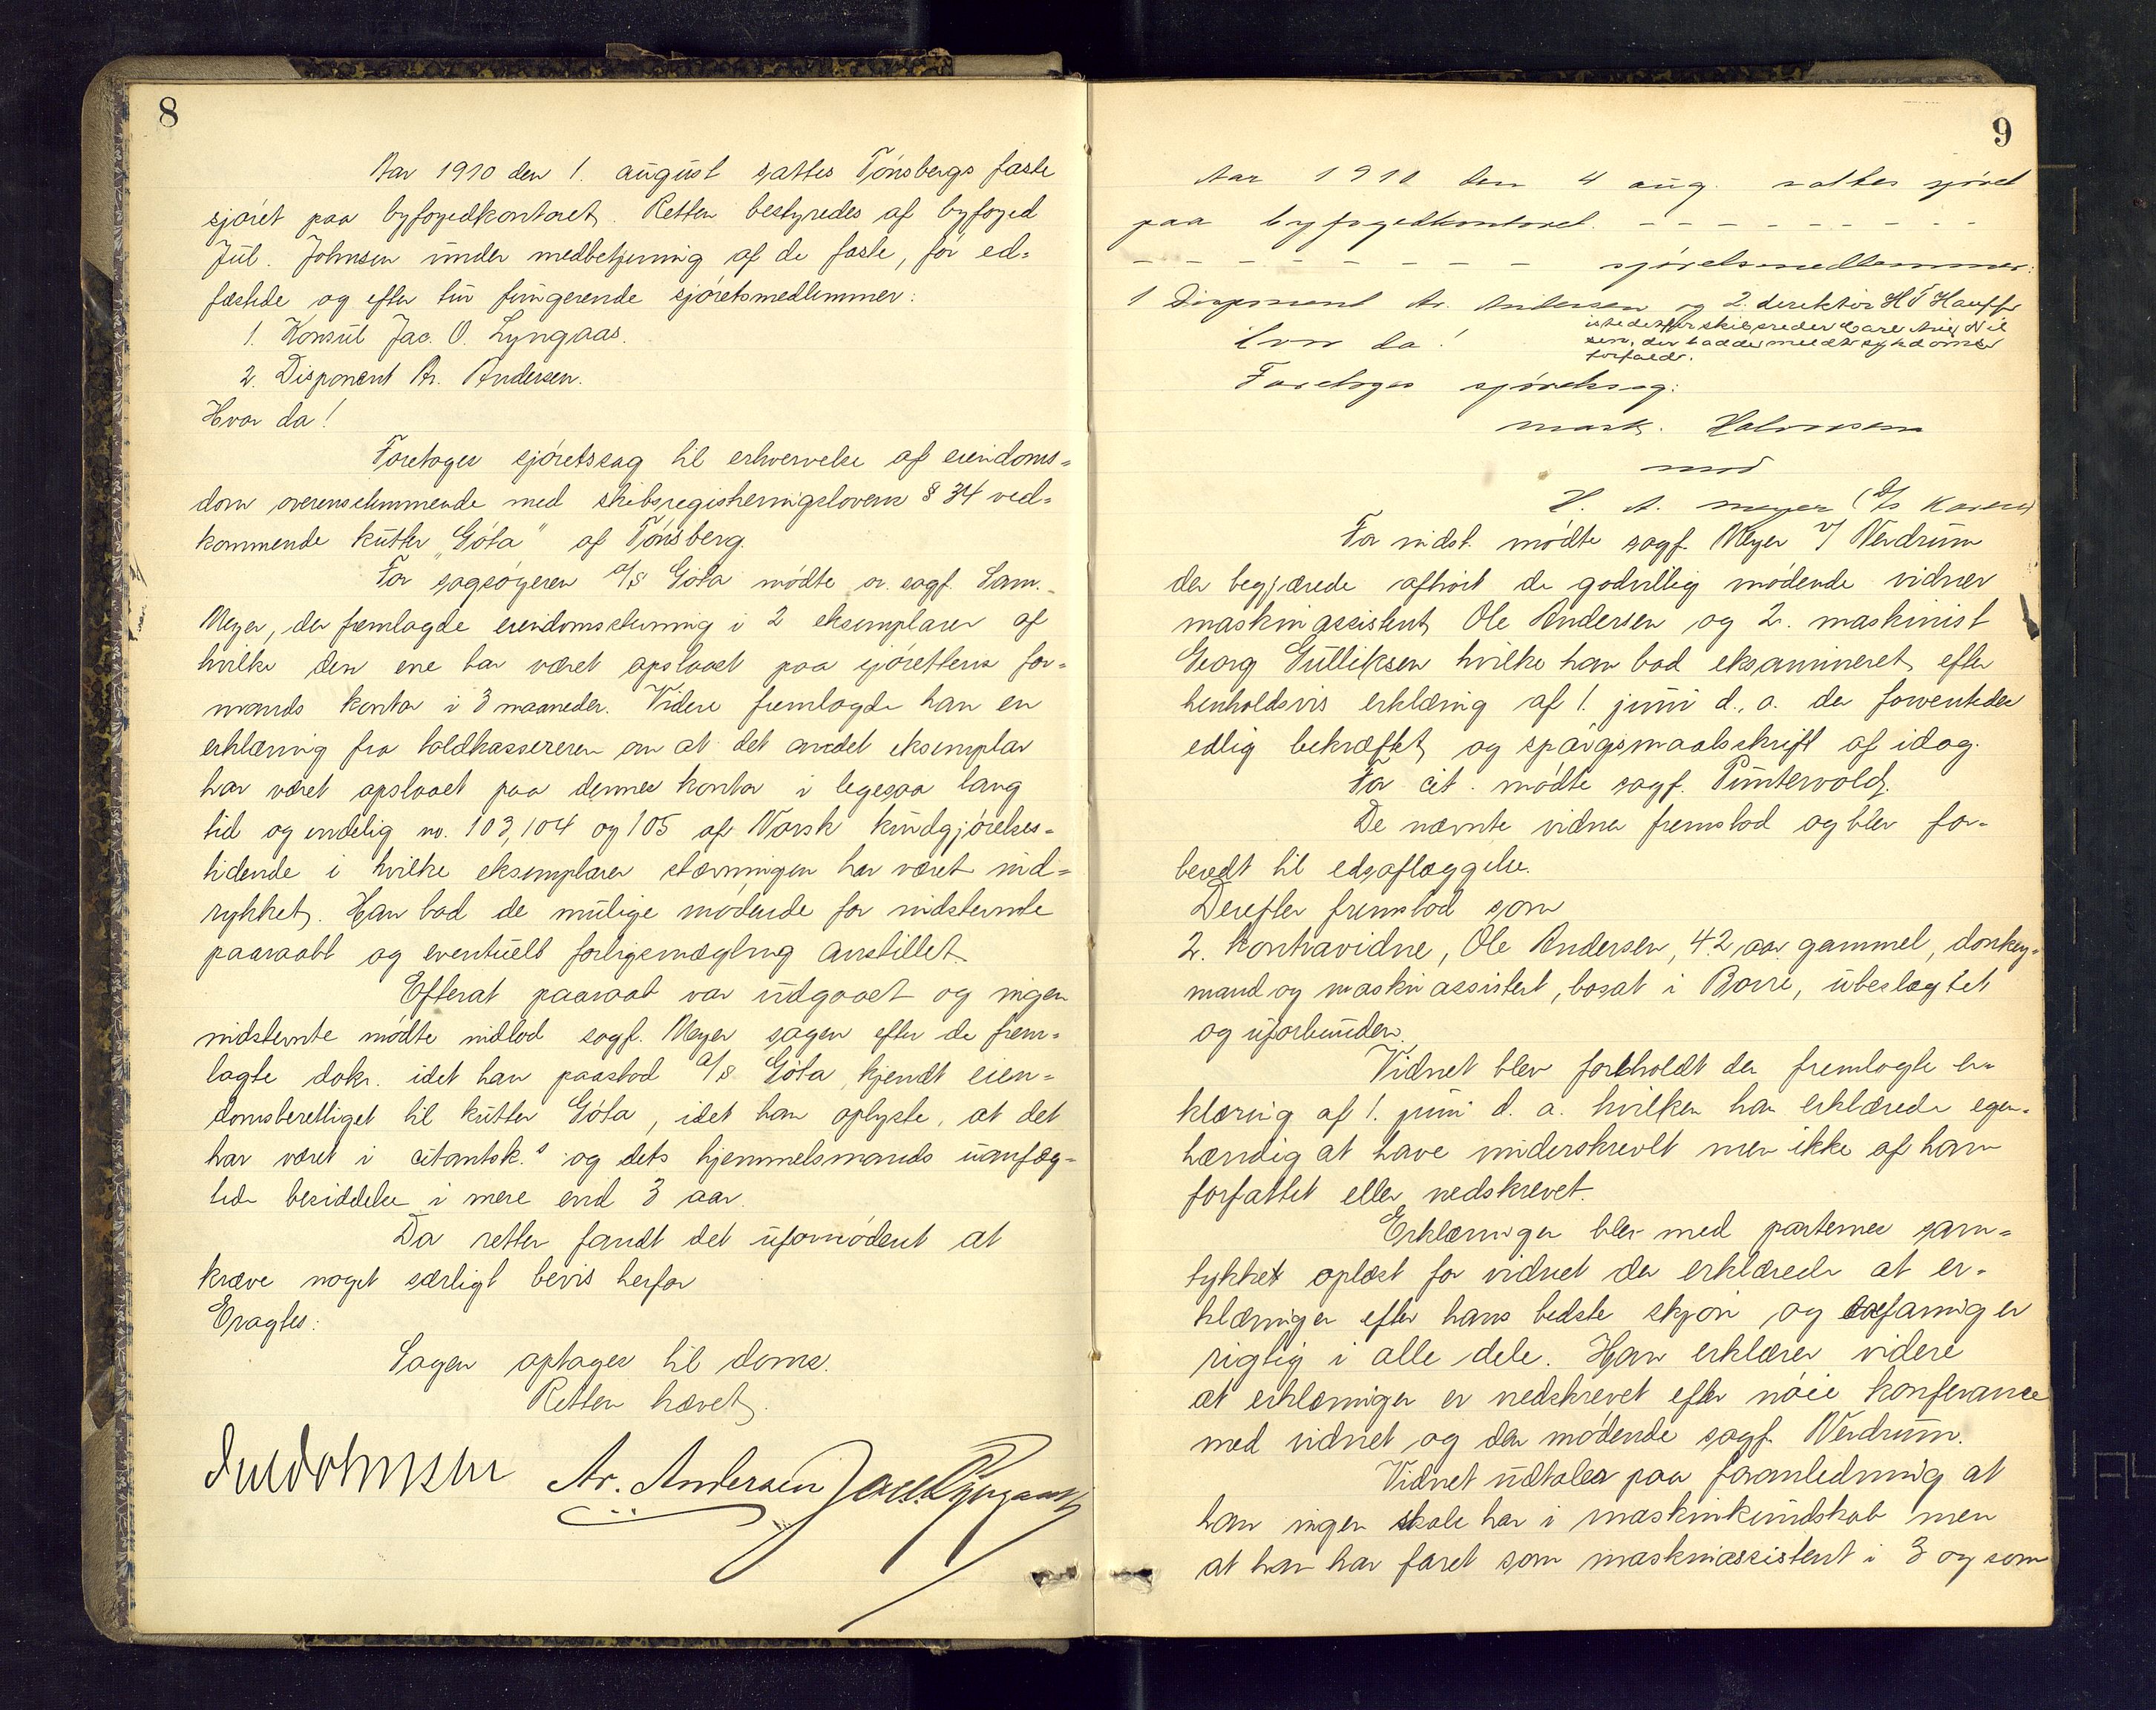 8
Aar 1910 den 1. august sattes Tønsbergs faste
sjøret paa byfogedkontoret. Retten bestyredes af byfoged
Jul. Johnsen under medbetjening af de faste, før ed-
fæstede og efter tur fungerende sjøretsmedlemmer:
1. Konsul Jac. O. Lyngaas.
2. Disponent Ar. Andersen.
Hvor da!
Foretoges sjøretssag til erhvervelse af eiendoms-
dom overensstemmende med skibsregistreringslovens § 34 ved-
kommende kutter "Gøta" af Tønsberg
For sagsøgeren A/S Gøta mødte o. sagf. Sam.
Meyer, der fremlagde eiendomsstevning i 2 eksemplarer af
hvilke den ene har været opslaaet paa sjørettens for-
mands kontor i 3 maaneder. Videre fremlagde han en
erklæring fra toldkassereren om at det andet eksemplar
har været opslaaet paa dennes kontor i ligesaa lang
tid og endelig no. 103, 104 og 105 af Norsk kundgjørelses-
tidende i hvilke eksemplarer stævningen har været ind-
rykket. Han bad de mulige mødende for indstevnte
paaraabt og eventuelt forligsmægling anstillet.
Efterat paaraab var udgaaet og ingen
indstevnte mødte indlod sagf. Meyer sagen efter de frem-
lagte dokr. idet han paastod A/S Gøta kjendt eien-
domsberettiget til kutter Gøta, idet han oplyste, at det
har været i citantsk.s og dets hjemmelsmands uanfæg-
tede besiddelse i mere end 3 aar.
Da retten fandt det ufornødent at
kræve noget særligt bevis herfor
Eragtes:
Sagen optages til doms.
Retten hævet.
Jul Johnsen Ar. Andersen Jac. O. Lyngaas
9
Aar 1910 den 4 aug. sattes sjøret
paa byfogedkontoret. - - - - - - - - -
- - - - - - - - - sjøretsmedlemmer:
1 Disponent Ar. Andersen og 2. direktør H T Hauff
istedetfor skibsreder Carl Nil
sen, der hadde meldt sygdoms
forfald.
Hvor da!
Foretoges sjøretssag:
mask. Halvorsen
mod
H. A. Meyer (D/S Karen)
For indst. mødte sagf. Meyer v/ Werdrum
der begjærede afhørt de godvillig mødende vidner
maskinassistent Ole Andersen og 2. maskinist
Georg Gulliksen hvilke han bad eksamineret efter
henholdsvis erklæring af 1. juni d. a. der forventedes
edlig bekræftet og spørgsmaalsskrift af idag.
For cit. mødte sagf. Puntervold.
De nævnte vidner fremstod og blev for-
beredt til edsaflæggelse.
Derefter fremstod som
2. kontravidne, Ole Andersen, 42 aar gammel, donkey-
mand og maskinassistent, bosat i Borre, ubeslægtet
og uforbunden.
Vidnet blev forholdt den fremlagte er-
klæring af 1. juni d. a. hvilken han erklærede egen-
hændig at have underskrevet men ikke af ham
forfattet eller nedskrevet.
Erklæringen blev med parternes sam-
tykket oplæst for vidnet der erklærede at er-
klæringen efter hans bedste skjøn og erfaring er
rigtig i alle dele. Han erklærer videre
at erklæringen er nedskrevet efter nøie konferance
med vidnet og den mødende sagf. Werdrum.
Vidnet udtaler paa foranledning at
han ingen skole har i maskinkundskab men
at han har faret som maskinassistent i 3 og som